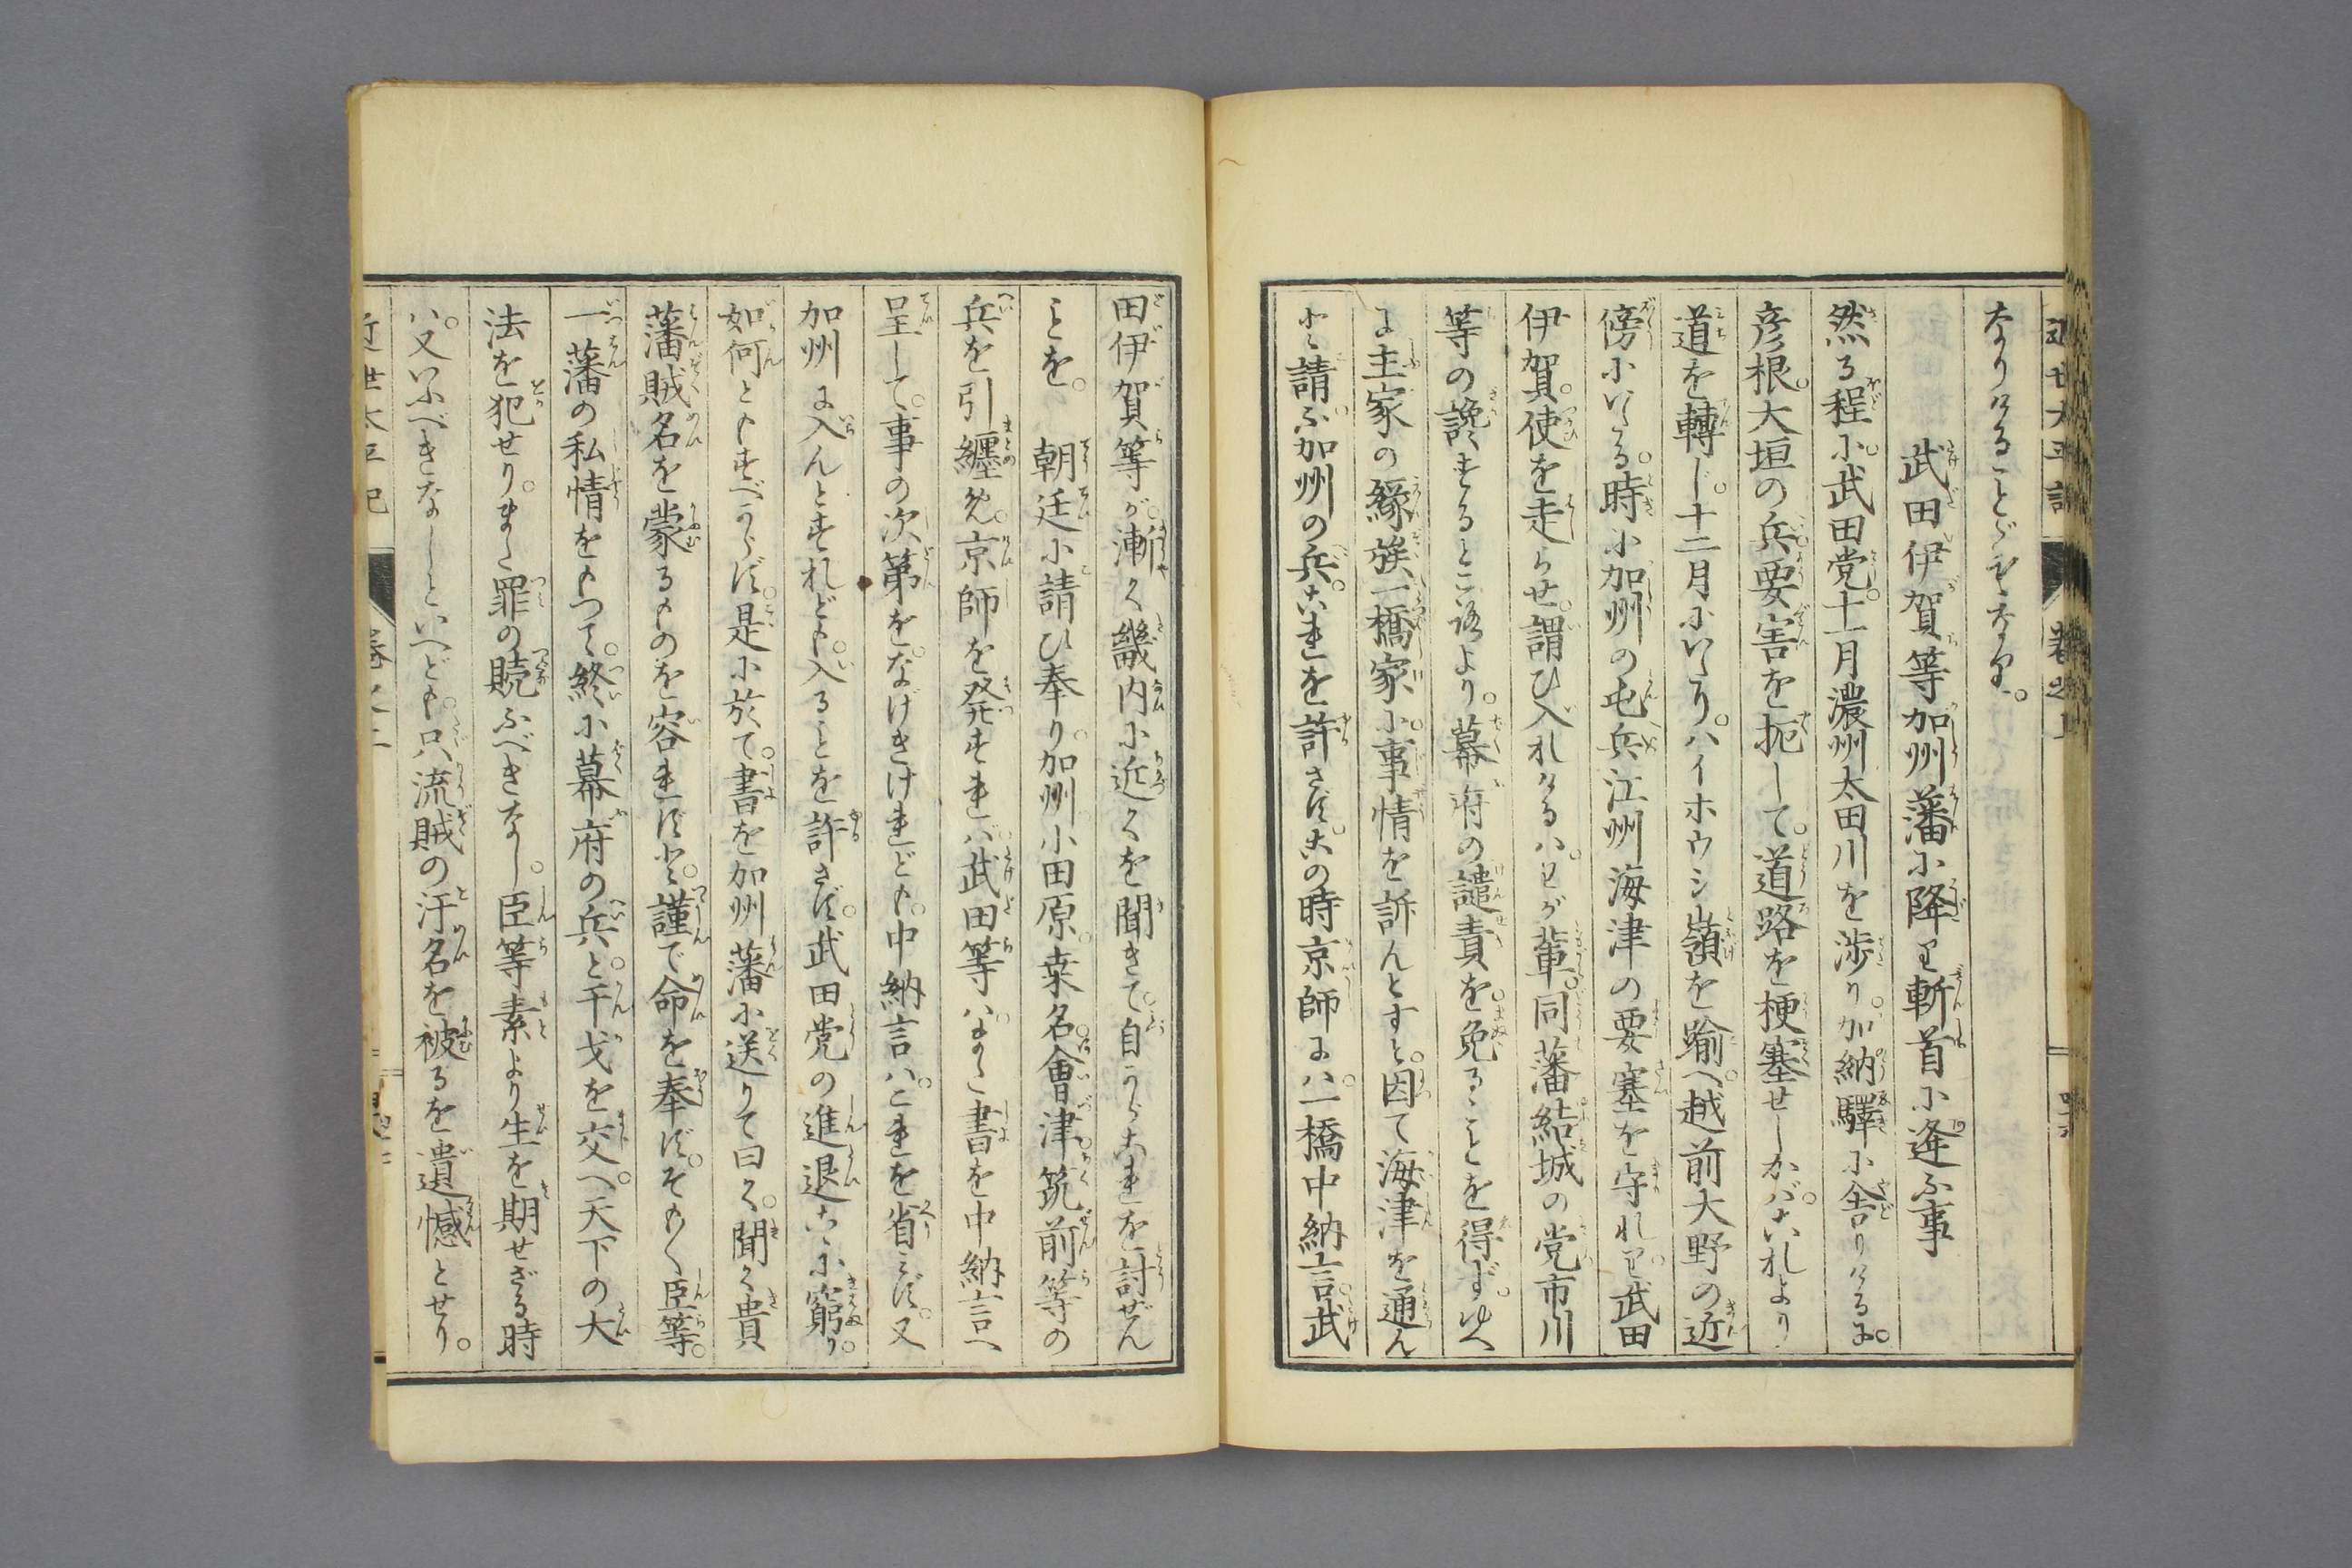 なりけることゞもなり。
武田伊賀等加州藩に降り斬首に逢ふ事
然る程に。武田党。十一月濃州太田川を渉り。加納驛に舎りけるに。
彦根。大垣の兵。要害を扼して。道路を梗塞せしかバ。これより
道を轉じ。十二月にいたり。ハイホウシ嶺を踰へ。越前大野の近
傍にいたる。時に加州の屯兵江州海津の要塞を守れり。武田
伊賀。使を走らせ。謂ひ入れけるハ。わが輩。同藩結城の党市川
等の讒するところより。幕府の譴責を。免るゝことを得ず。ゆへ
に主家の縁族一橋家に。事情を訴んとすと。因て海津を通ん
と請ふ加州の兵。これを許さず。この時京師にハ。一橋中納言。武
田伊賀等が。漸く畿内に近づくを聞きて。自らこれを討ぜん
ことを。 朝廷に請ひ奉り。加州小田原。桒名。會津。筑前等の
兵を引纏め。京師を発すれバ。武田等ハ。また書を中納言へ
呈して。事の次第を。なげきけれども。中納言ハ。これを省みず。又
加州に入んとすれども。入ることを許さず。武田党の進退こゝに窮り。
如何ともすべからず。是に於て。書を加州藩に送りて曰く。聞く貴
藩賊名を蒙るものを容れずと。謹で命を奉ず。そも〳〵臣等。
一藩の私情をもつて。終に幕府の兵と。干戈を交へ。天下の大
法を犯せり。また罪の贖ふべきなし。臣等素より生を期せざる時
ハ。又いふべきなしといへども。只流賊の汙名を被るを遺憾とせり。
近世太平記